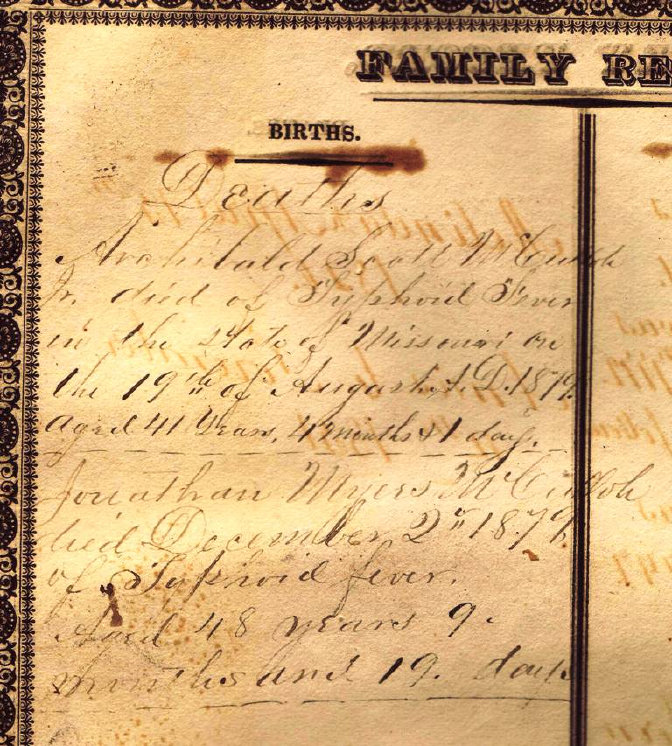 FAMILY RE
BIRTHS.
Deaths
Archibald Scott McCulloh
Jr. died of Typhoid Fever
in the State of Missouri on
the 19th of Augast A.D. 1879.
aged 41 Years, 4 months & 1 day.
Jonathan Myers McCulloh
died December 2" 1879
of Typhoid fever.
Aged 48 years 9.
months and 19. days